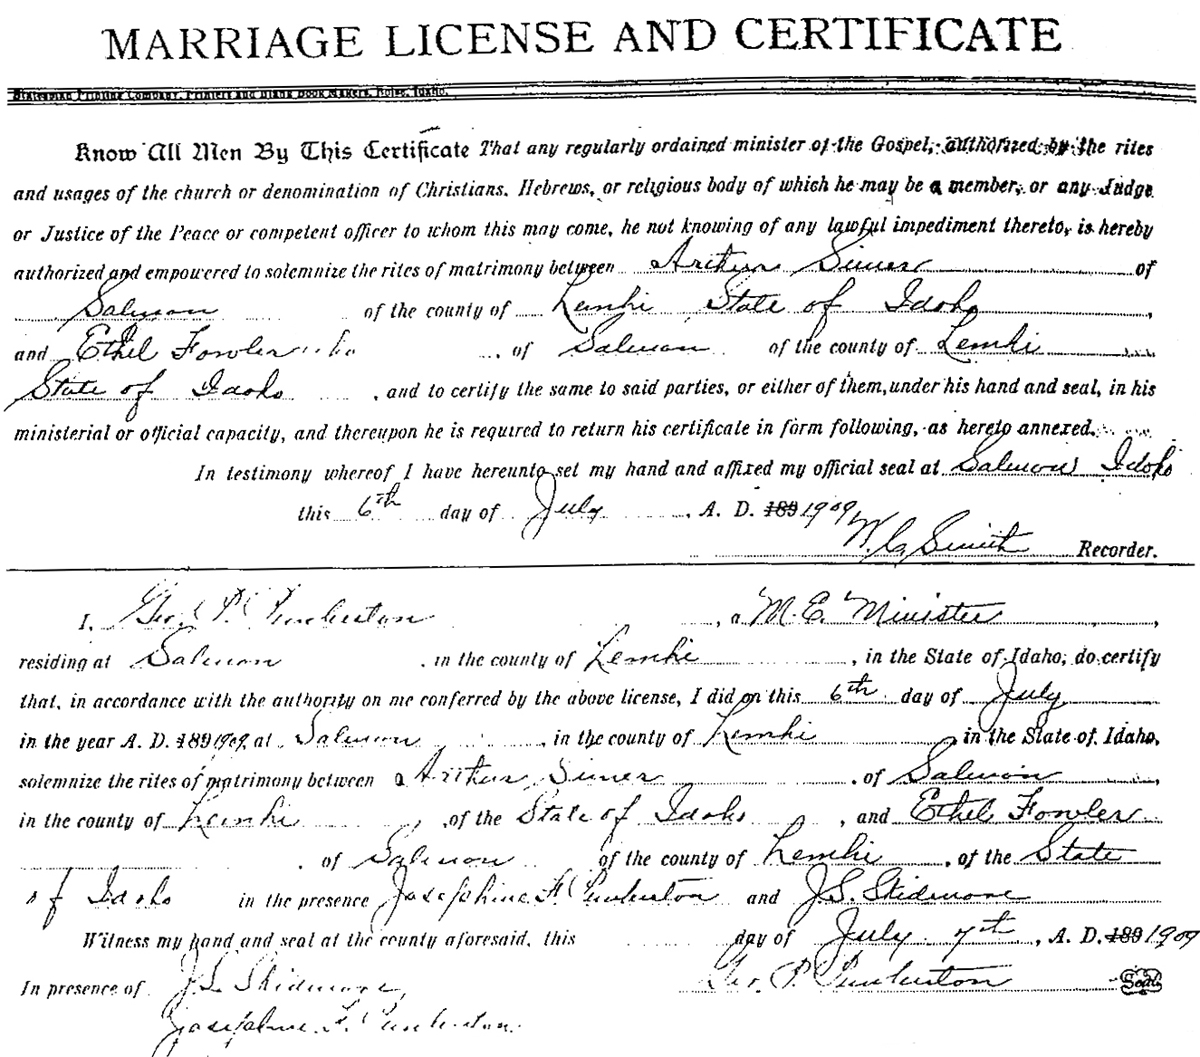 MARRIAGE LICENSE AND CERTIFICATE
Statesman Printing Company, Printers and Blank Book Makers, Boise, Idaho.
Know All Men By This Certificate That any regularly ordained minister of the Gospel, authorized by the rites
and usages of the church or denomination of Christians, Hebrews, or religious body of which he may be a member, or any Judge
or Justice of the Peace or competent officer to whom this may come, he not knowing of any lawful impediment thereto, is hereby
authorized and empowered to solemnize the rites of matrimony between Arthur Simer of
Salmon of the county of Lemhi State of Idaho,
and Ethel Fowler of Salmon of the county of Lemhi
State of Idaho, and to certify the same to said parties, or either of them, under his hand and seal, in his
ministerial or official capacity, and thereupon he is required to return his certificate in form following, as hereto annexed.
In testimony whereof I have hereunto set my hand and affixed my official seal at Salmon Idaho
this 6th day of July, A. D. 189 1909
W. C. Smith Recorder.
I, Geo. P. Pemberton, a M. E. Minister,
residing at Salmon, in the county of Lemhi, in the State of Idaho, do certify
that, in accordance with the authority on me conferred by the above license, I did on this 6th day of July
in the year A. D. 189 1909, at Salmon, in the county of Lemhi, in the State of Idaho,
solemnize the rites of matrimony between Arthur Simer, of Salmon,
in the county of Lemhi, of the State of Idaho, and Ethel Fowler
, of Salmon of the county of Lemhi, of the State
of Idaho in the presence Josephine F. Pemberton and J. S. Skidmore
Witness my hand and seal at the county aforesaid, this day of July 7th, A. D. 189 1909
In presence of J. S. Skidmore, Geo. P. Pemberton Seal
Josephine F. Pemberton.